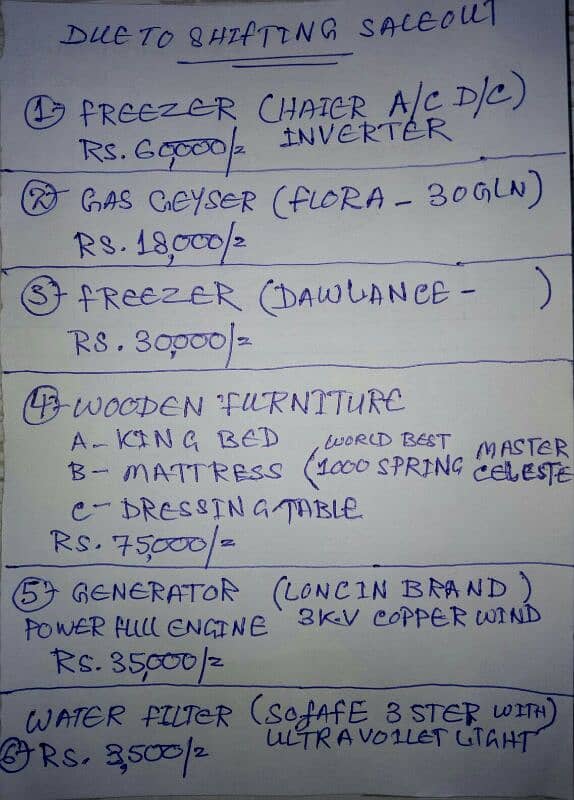 DUE TO SHIFTING SALEOUT
1) FREEZER (HAIER A/C D/C)
RS. 60,000/= INVERTER
2) GAS GEYSER (FLORA - 30GLN)
RS. 18,000/=
3) FREEZER (DAWLANCE - )
RS. 30,000/=
4) WOODEN FURNITURE
A - KING BED
B - MATTRESS (WORLD BEST 1000 SPRING MASTER CELESTE
C - DRESSING TABLE
RS. 75,000/=
5) GENERATOR (LONCIN BRAND)
POWER FULL ENGINE 3K.V COPPER WIND
RS. 35,000/=
WATER FILTER (SOFAFE 3 STER WITH)
ULTRAVOILET LIGHT
6) RS. 3,500/=